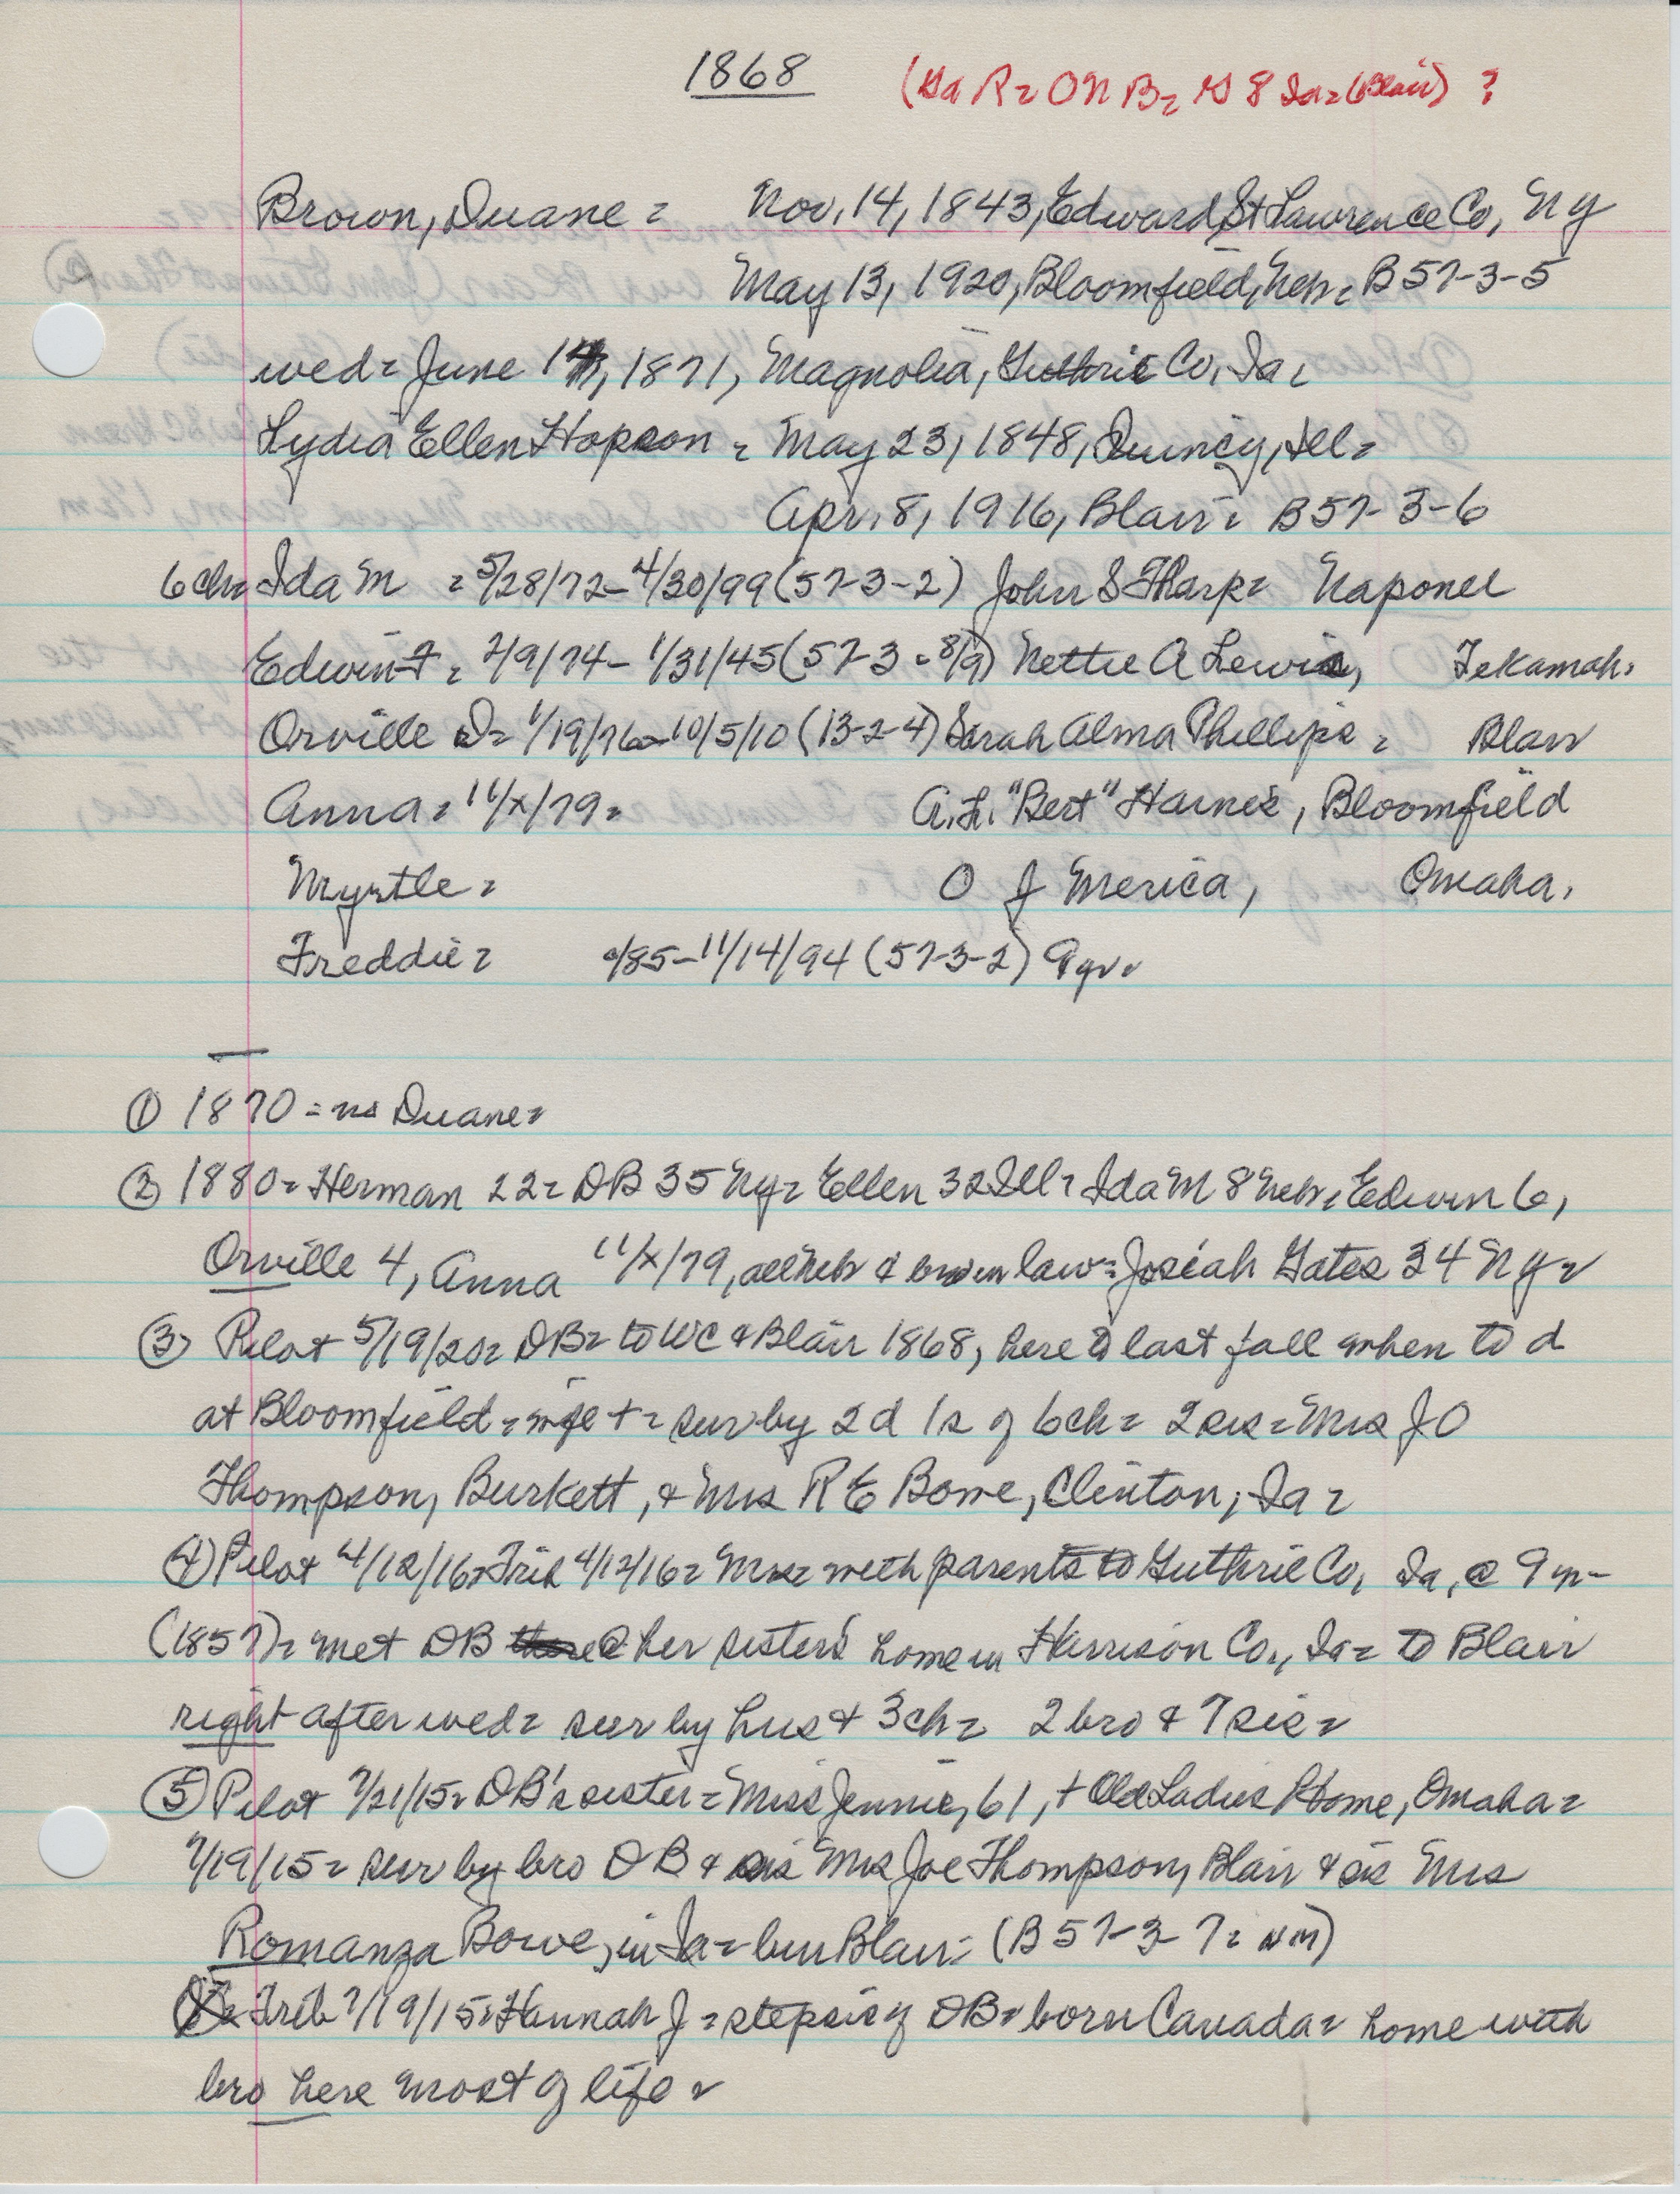 1868 (Ga R= ON B= G 8 Ia= (Blair) ?
Brown, Duane = Nov. 14, 1843, Edward, St Lawrence Co, NY
May 13, 1920, Bloomfield, Neb= B 57-3-5
wed= June 1871, Magnolia, Guthrie Co, Ia=
Lydia Ellen Hopson = May 23, 1848, Quincy, Ill=
Apr. 8, 1916, Blair= B 57-3-6
6 ch= Ida M = 5/28/72 - 4/30/99 (57-3-2) John S Tharp= Naponee
Edwin F = 2/9/74 - 1/31/45 (57-3-8/9) Nettie A Lewis, Tekamah.
Orville D= 1/19/76 - 10/5/10 (13-2-4) Sarah Alma Phillips = Blair
Anna = 11/x/79= A.L. "Bert" Haines, Bloomfield
Myrtle = O J Merica, Omaha.
Freddie= c/85 - 11/14/94 (57-3-2) 9 yr=
① 1870 = no Duane=
② 1880= Herman 22= DB 35 NY= Ellen 32 Ill= Ida M 8 Neb= Edwin 6,
Orville 4, Anna 11/x/79, all Neb & bro in law= Josiah Gates 34 NY=
③ Pilot 5/19/20= DB= to WC & Blair 1868, here to last fall when to d
at Bloomfield = wife + = sur by 2 d 1 s of 6 ch= 2 sis= Mrs J O
Thompson, Burkett, & Mrs R E Bowe, Clinton, Ia=
④ Pilot 4/12/16= Trib 4/12/16= Mrs= with parents to Guthrie Co, Ia, @ 9 yr-
(1857)= met DB @ her sister's home in Harrison Co., Ia= to Blair
right after wed= sur by hus & 3 ch= 2 bro & 7 sis=
⑤ Pilot 7/21/15= DB's sister = Miss Jennie, 61, + Old Ladies Home, Omaha=
7/19/15= sur by bro DB & sis Mrs Joe Thompson, Blair & sis Mrs
Romanza Bowe, in Ia= bur Blair= (B 57-3-7= NM)
Trib 7/19/15= Hannah J = stepsis of DB= born Canada= home with
bro here most of life=